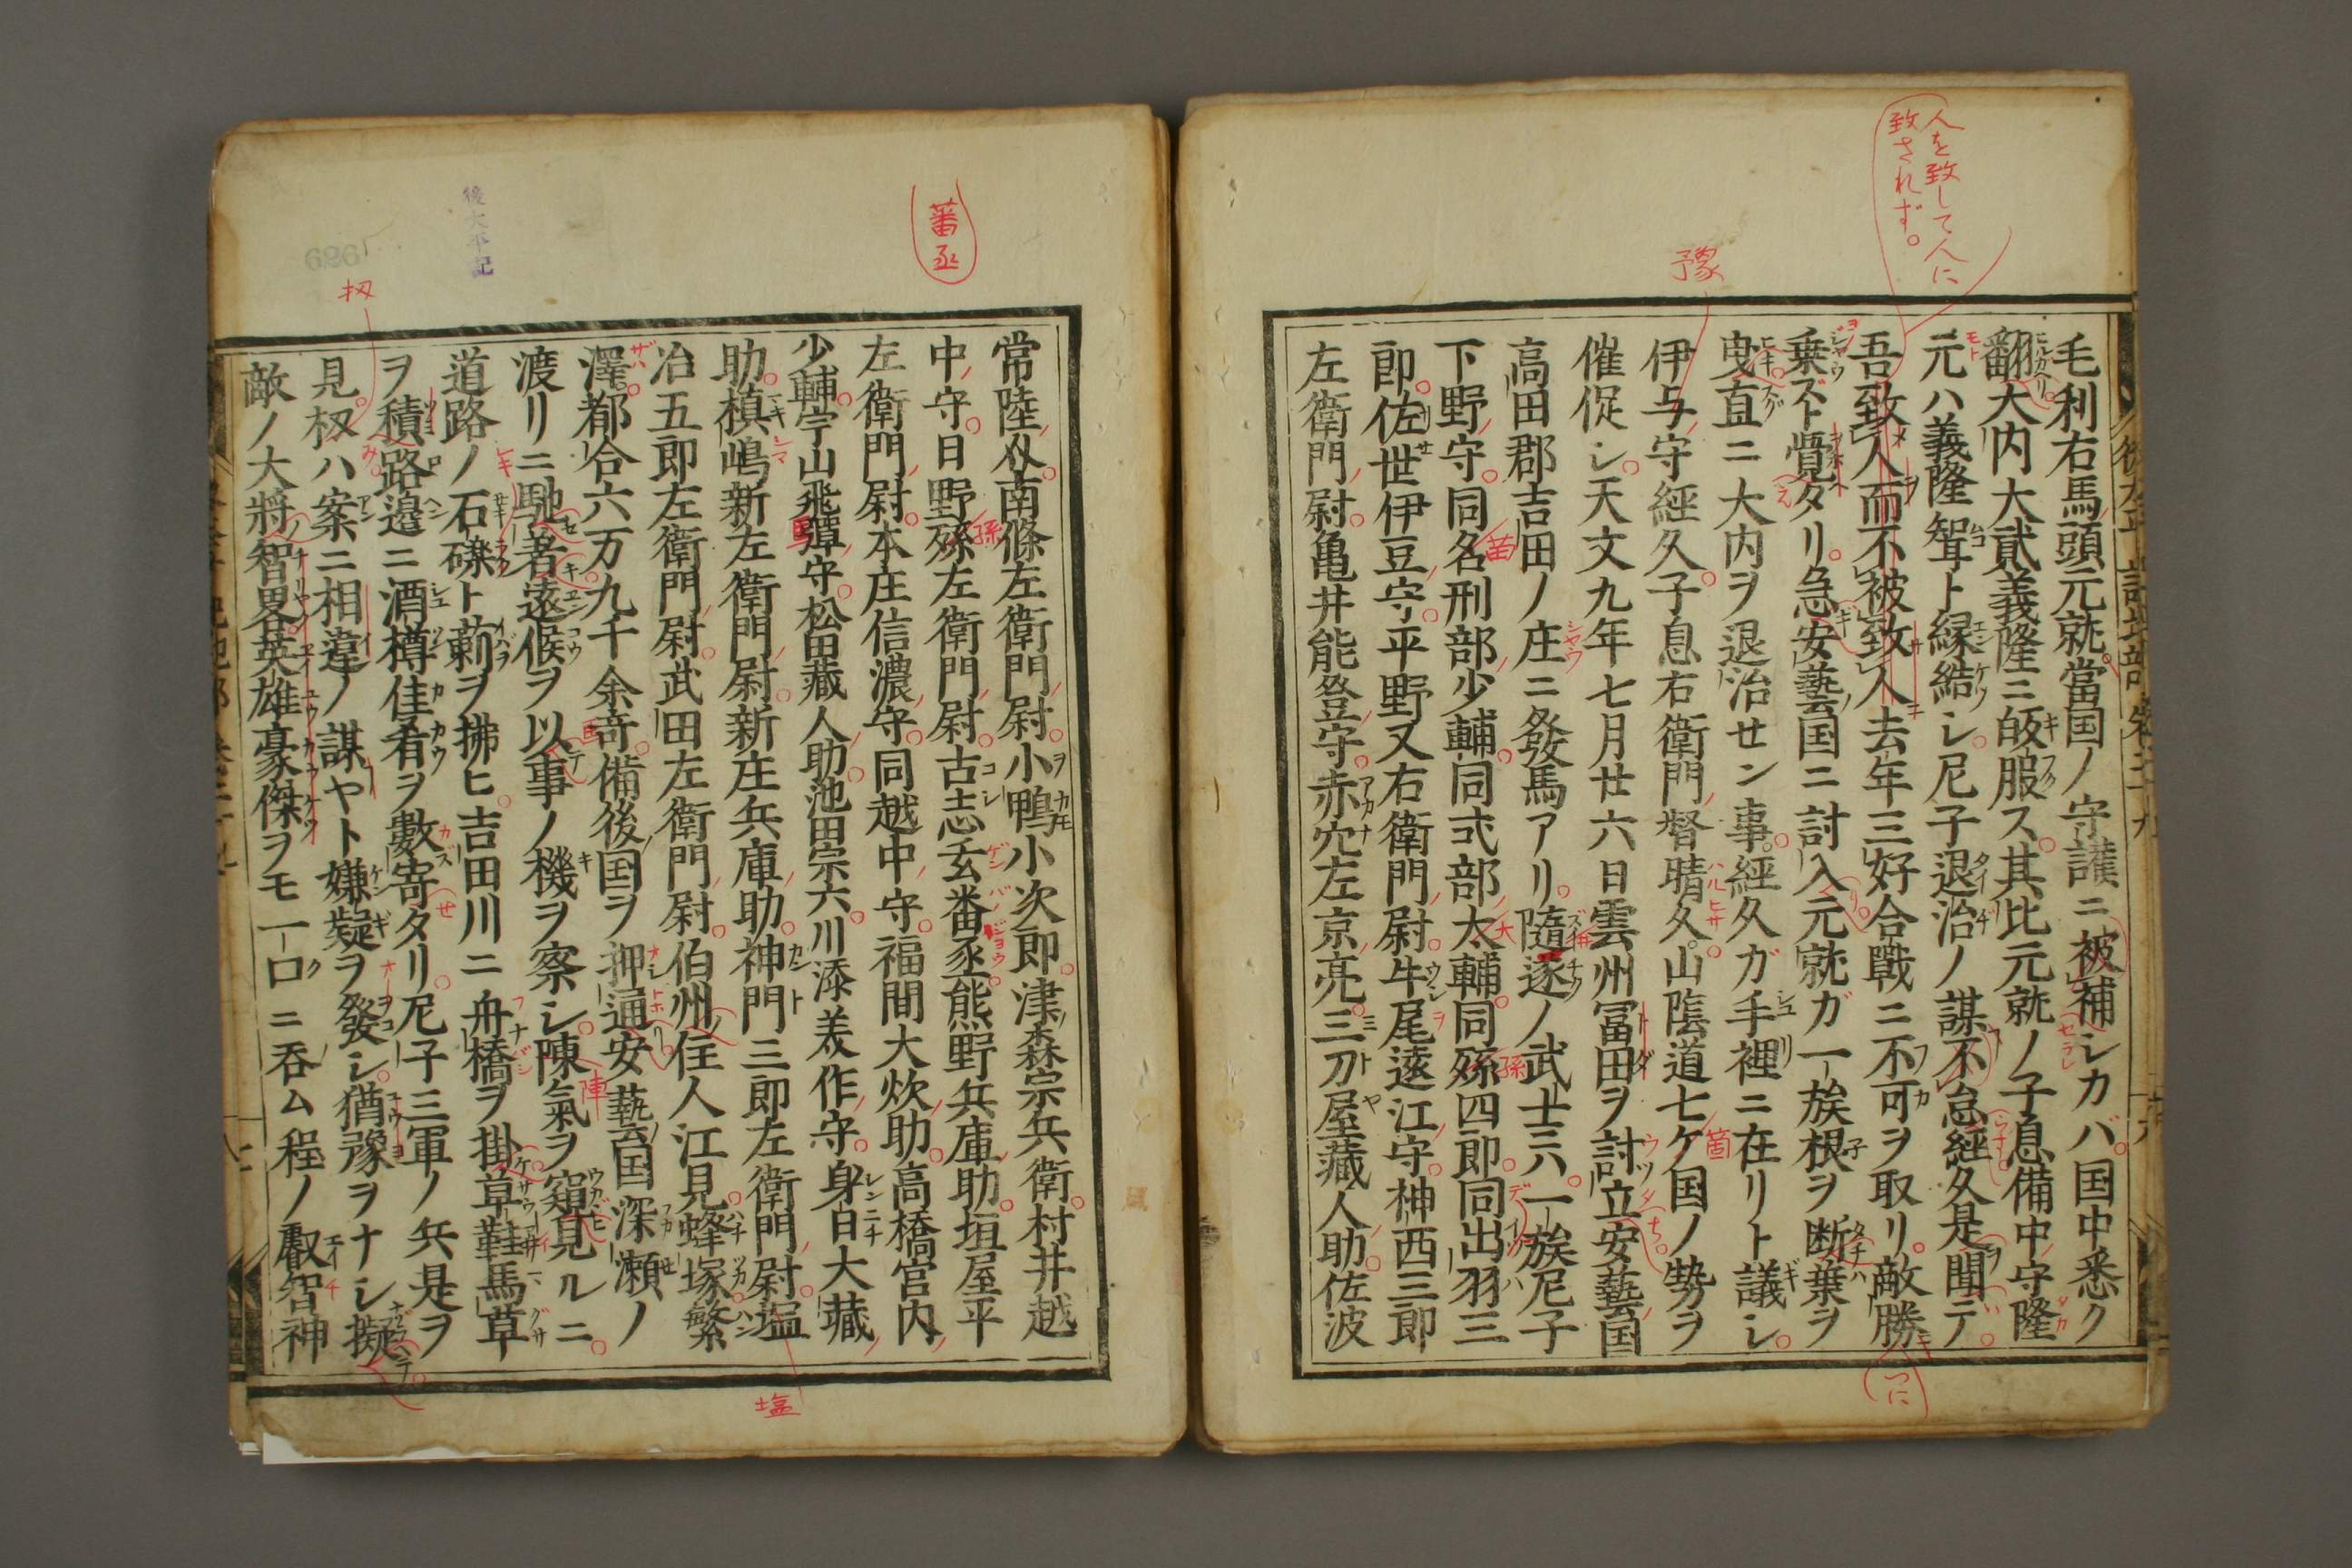 人を致して人に
致されず。
予象
毛利右馬頭元就當国ノ守護ニ被補シカバ国中悉ク
翻大内大貳義隆ニ皈服ス其比元就ノ子息備中守隆
元ハ義隆聟ト縁結シ尼子退治ノ謀不怠經久是聞デ
吾致人而不被致人去年三好合戰ニ不可ヲ取リ敵勝
乗ズト覺タリ急安藝国ニ討入元就ガ一族根ヲ断葉ヲ
曳直ニ大内ヲ退治セン事經久ガ手裡ニ在リト議シ
伊与守經久子息右衛門督晴久山陰道七ケ国ノ勢ヲ
催促シ天文九年七月廿六日雲州冨田ヲ討立安藝国
高田郡吉田ノ庄ニ發馬アリ隨逐ノ武士ニハ一族尼子
下野守同名刑部少輔同式部太輔同孫四郎同出羽三
郎佐世伊豆守平野又右衛門尉牛尾遠江守神西三郎
左衛門尉亀井能登守赤穴左京亮三刀屋藏人助佐波
蕃丞
後太平記
626
扨
常陸介南條左衛門尉小鴨小次郎津森宗兵衛村井越
中守日野孫左衛門尉古志玄番丞熊野兵庫助垣屋平
左衛門尉本庄信濃守同越中守福間大炊助高橋宮内
少輔宇山飛彈守松田藏人助池田宗六川添美作守身白大藏
助槙嶋新左衛門尉新庄兵庫助神門三郎左衛門尉塩
冶五郎左衛門尉武田左衛門尉伯州住人江見蜂塚繁
澤都合六万九千余竒備後国ヲ押通安藝国深瀬ノ
渡リニ馳著遠候ヲ以事ノ機ヲ察シ陳氣ヲ窺見ルニ
道路ノ石磔ト薪ヲ拂ヒ吉田川ニ舟橋ヲ掛草鞋馬草
ヲ積路邉ニ酒樽佳肴ヲ數寄タリ尼子三軍ノ兵是ヲ
見扨ハ案ニ相違ノ謀ヤト嫌疑ヲ發シ猶豫ヲナシ擬
敵ノ大將智畧英雄豪傑ヲモ一口ニ呑ム程ノ叡智神
塩